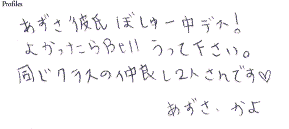 Profiles
あずさ彼氏ぼしゅー中デス!
よかったらBellうって下さい。
同じクラスの仲良し2人さんです♡
あずさ、かよ